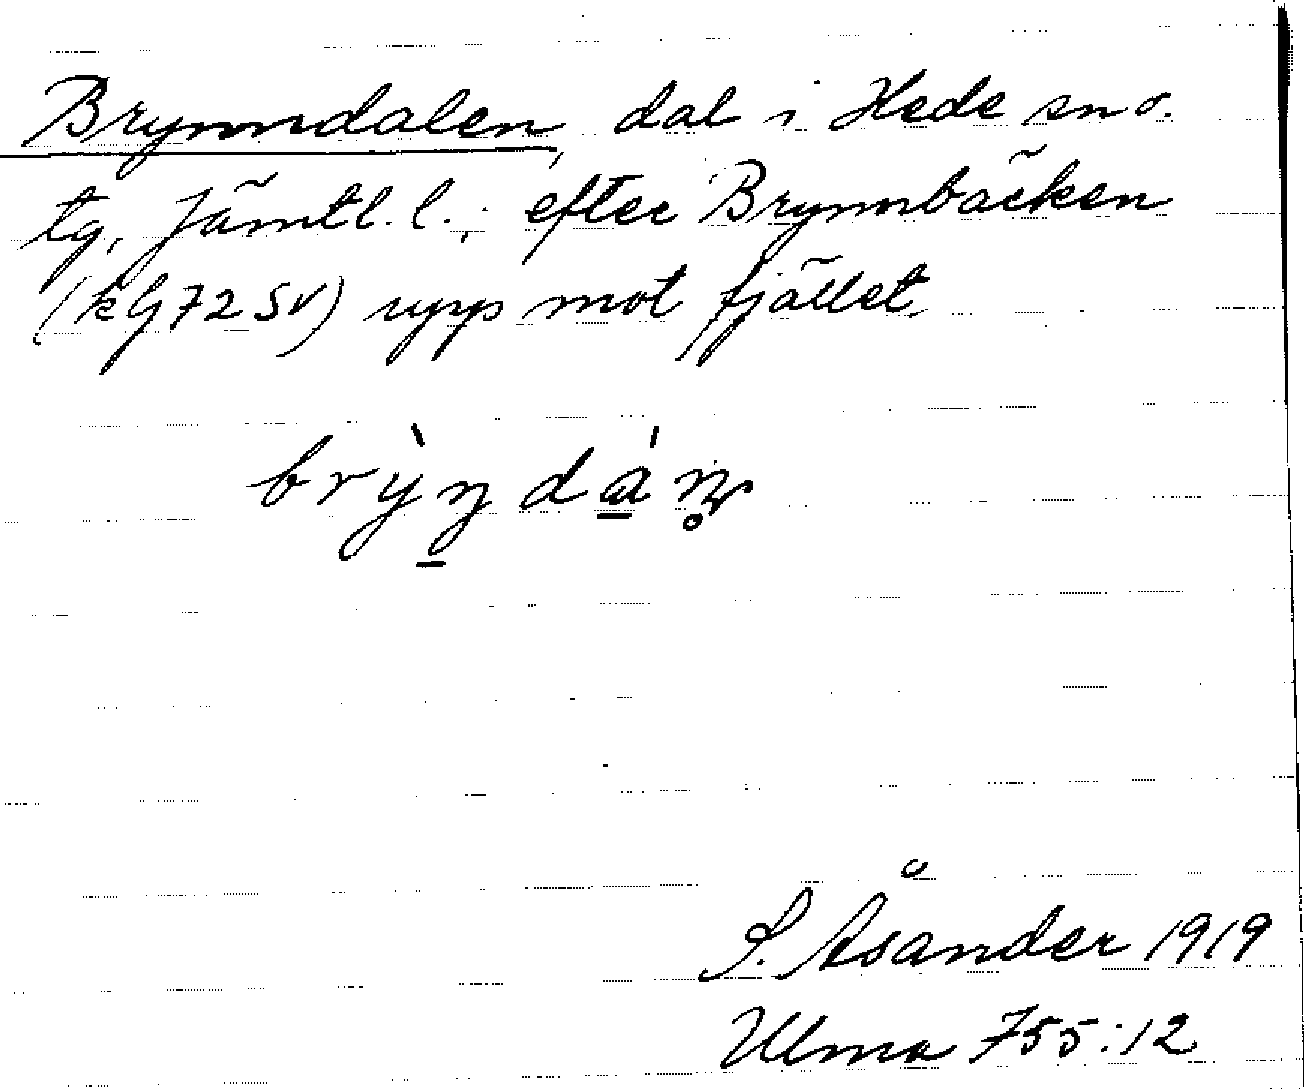 Brynndalen, dal i Hede sn o.
tg, Jämtl. l.; efter Brynnbäcken
(kG72SV) upp mot fjället.
brỳn̠dá̠n̥
S. Åsander 1919
Ulma 755:12